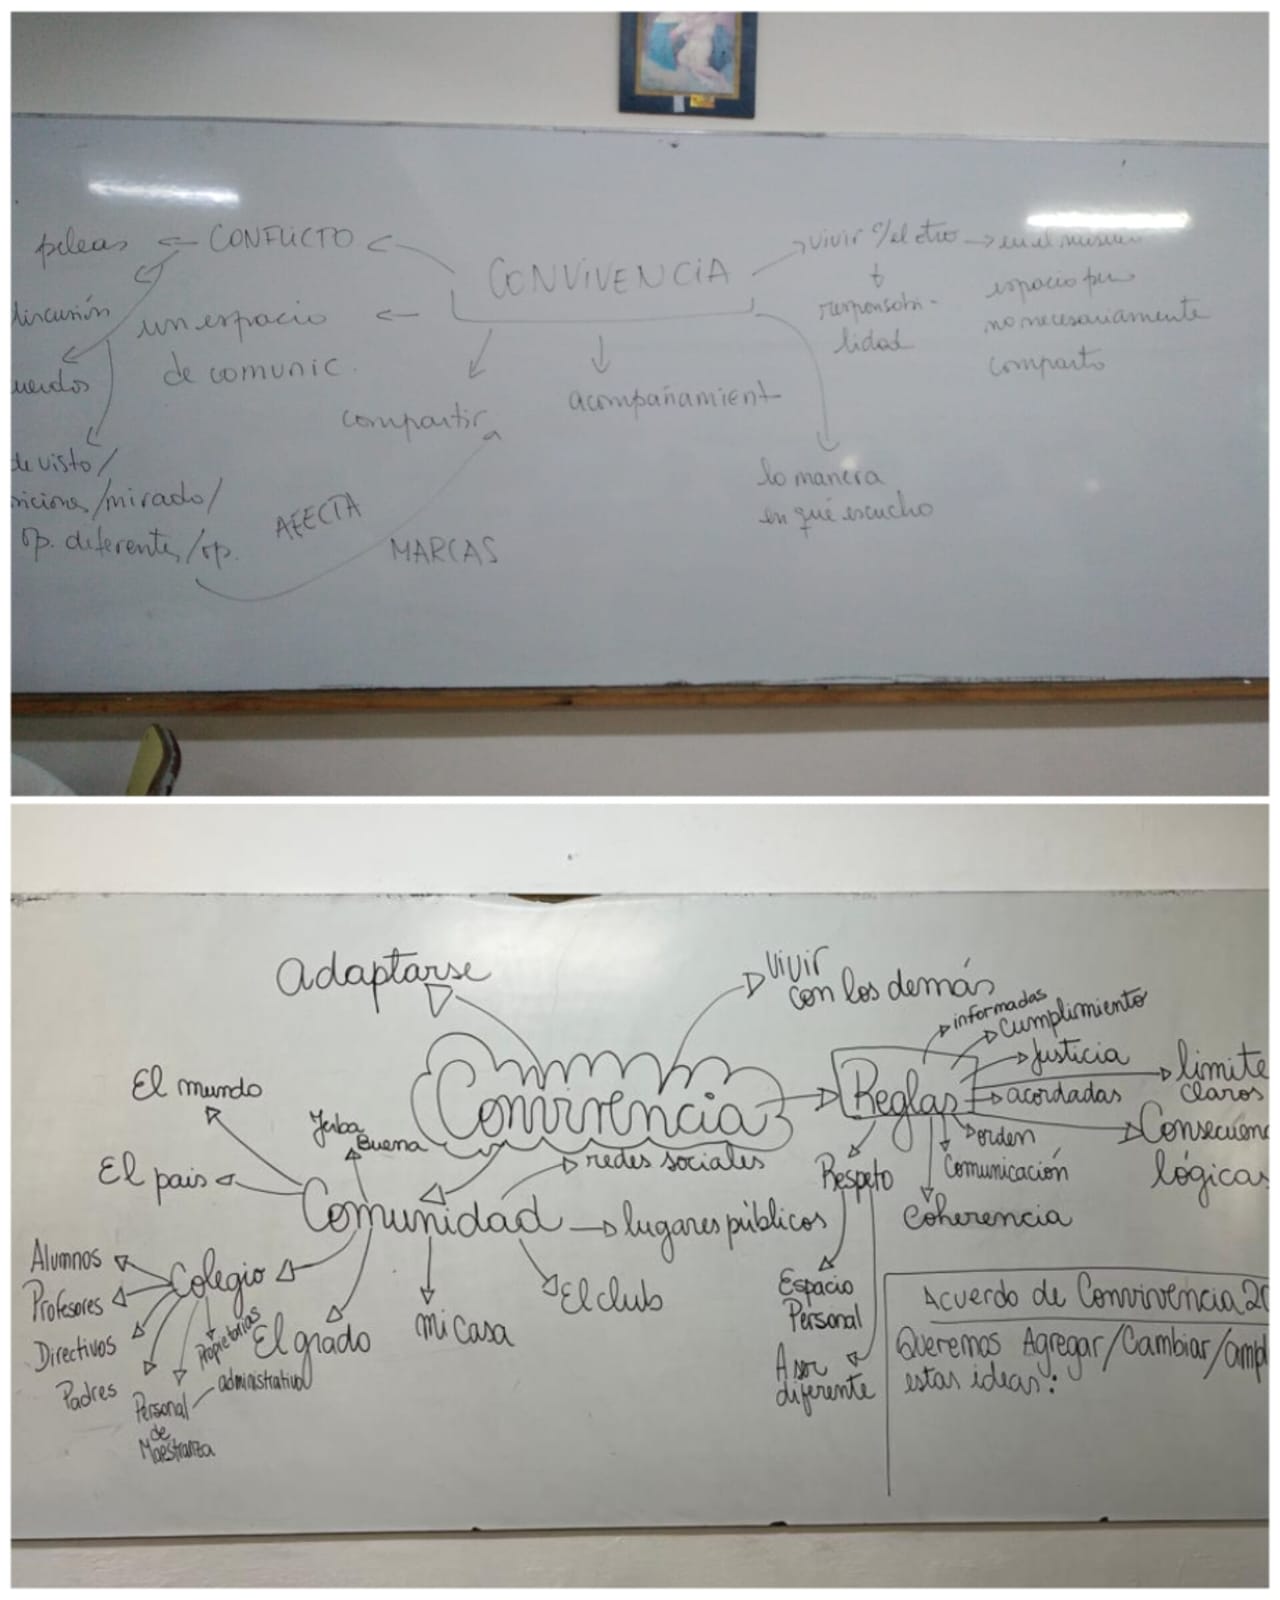 peleas
CONFLICTO
CONVIVENCIA
vivir c/el otro
en el mismo
espacio pero
no necesariamente
comparto
responsabi-
lidad
discusión
un espacio
de comunic.
compartir
acompañamient
la manera
en qué escucho
de visto/
/mirado/
op. diferentes/op.
AFECTA
MARCAS
adaptarse
vivir
con los demás
Convivencia
Reglas
informadas
Cumplimiento
Justicia
acordadas
límite
claros
orden
Consecuen
lógicas
Comunicación
Coherencia
Respeto
Espacio
Personal
A ser
diferente
El mundo
El pais
Yerba
Buena
redes sociales
Comunidad
lugares públicos
El club
mi casa
El grado
Colegio
Alumnos
Profesores
Directivos
Padres
Personal
de
Maestranza
administrativo
Propietarias
Acuerdo de Convivencia 20
Queremos Agregar/Cambiar/ampl
estas ideas: